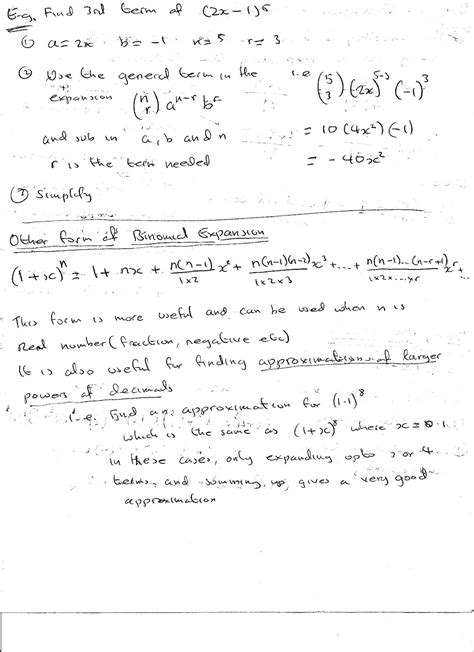 E.g. Find 3rd term of (2x - 1)⁵
① a = 2x b = -1 n = 5 r = 3
② Use the general term in the expansion (n r) aⁿ⁻ʳ bʳ
and sub in a, b and n
r is the term needed
i.e (5 3) (2x)⁵⁻³ (-1)³
= 10 (4x²) (-1)
= - 40x²
③ Simplify
Other form of Binomial Expansion
(1+x)ⁿ = 1 + nx + n(n-1)/1x2 x² + n(n-1)(n-2)/1x2x3 x³ + ... + n(n-1)...(n-r+1)/1x2x...xr xʳ + ...
This form is more useful and can be used when n is
Real number (fraction, negative etc)
It is also useful for finding approximations of larger
powers of decimals
i.e. find, an approximation for (1.1)⁸
which is the same as (1+x)⁸ where x = 0.1
in these cases, only expanding upto 3 or 4
terms, and summing up, gives a very good
approximation